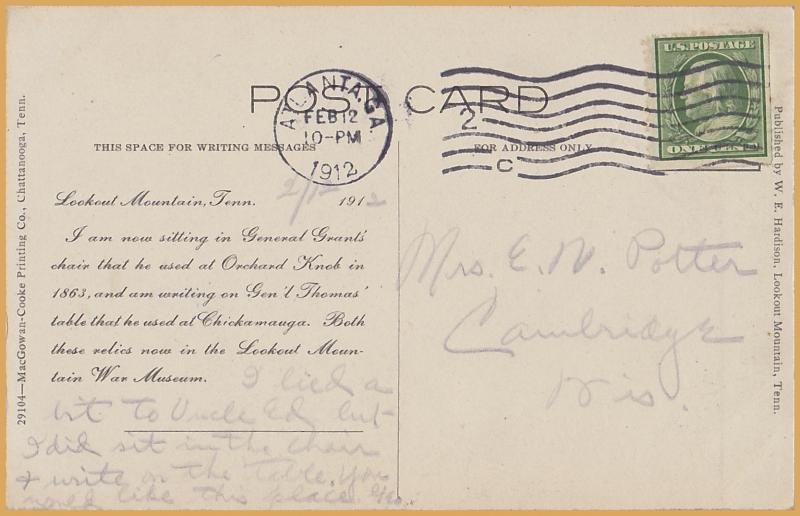 POST CARD
ATLANTA, GA.
FEB 12
10-PM
1912
2
C
U.S. POSTAGE
THIS SPACE FOR WRITING MESSAGES
FOR ADDRESS ONLY
29104—MacGowan-Cooke Printing Co., Chattanooga, Tenn.
Lookout Mountain, Tenn. 2/12 1912
I am now sitting in General Grant's
chair that he used at Orchard Knob in
1863, and am writing on Gen'l Thomas'
table that he used at Chickamauga. Both
these relics now in the Lookout Moun-
tain War Museum. I lied a
bit to Uncle Ed but
I did sit in the chair
& write on the table. You
would like this place.
Mrs. E. W. Potter
Cambridge
Wis.
Published by W. E. Hardison, Lookout Mountain, Tenn.